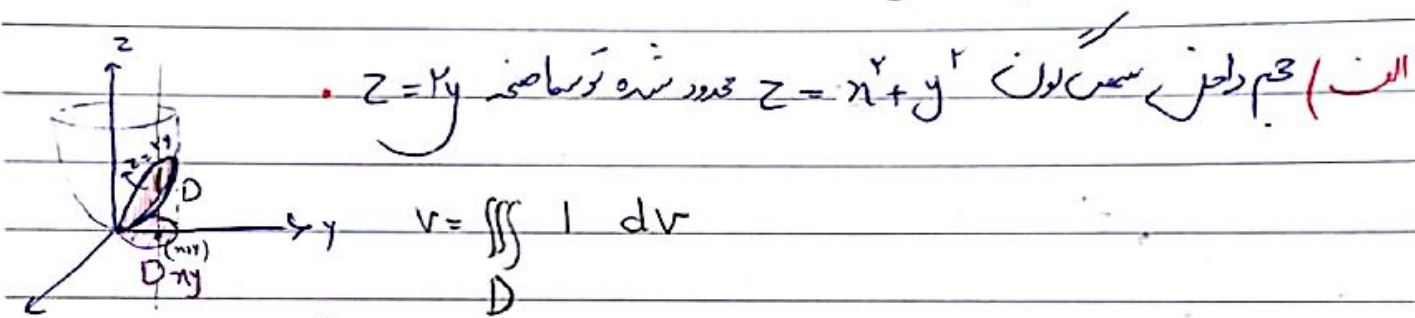 الف) حجم داخل سهمی گون z = x² + y² محدود شده توسط صفحه z = ۲y .
z
z=۲y
D
y
(x,y)
Dxy
V = ∭ 1 dv
D